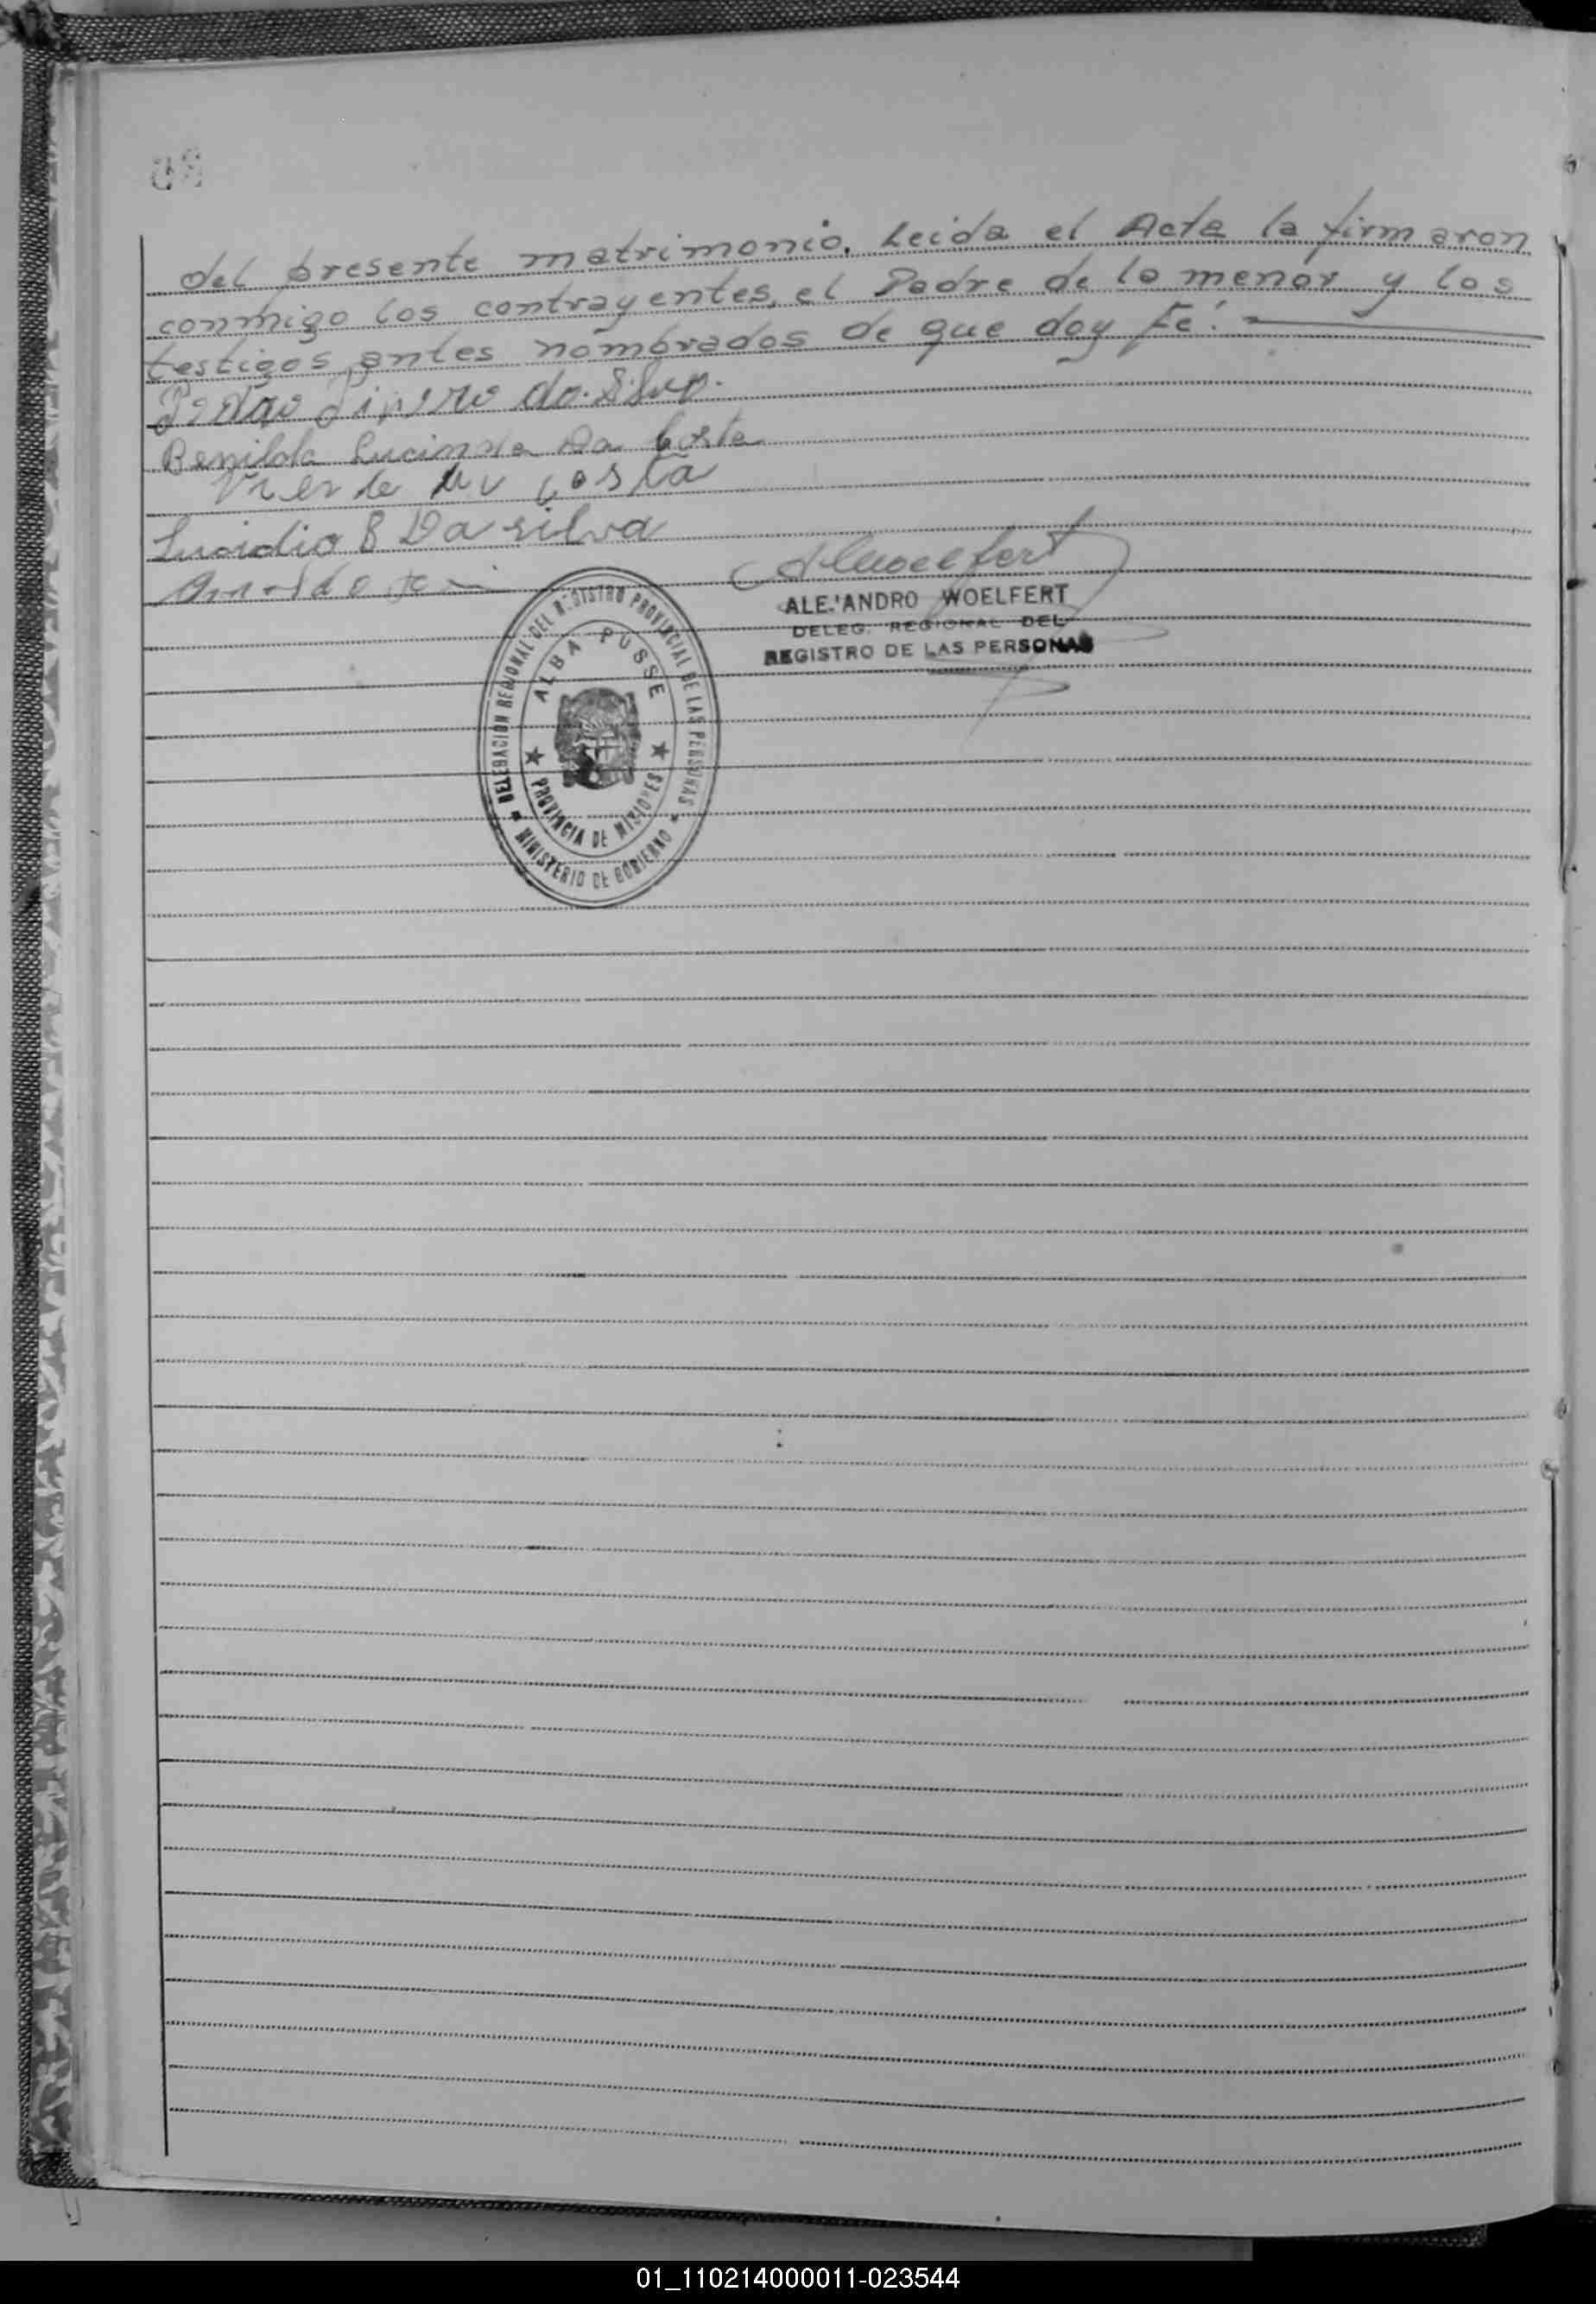 del presente matrimonio. Leida el Acta la firmaron
conmigo los contrayentes, el Padre de la menor y los
testigos antes nombrados de que doy Fé.
da Silva.
Benilda Lucinda Da Costa
Vicente da Costa
Lucidio B Da silva
AWoelfert
ALEJANDRO WOELFERT
DELEG. REGIONAL DEL
REGISTRO DE LAS PERSONAS
DELEGACION REGIONAL DEL REGISTRO PROVINCIAL DE LAS PERSONAS
ALBA POSSE
PROVINCIA DE MISIONES
MINISTERIO DE GOBIERNO
01_110214000011-023544